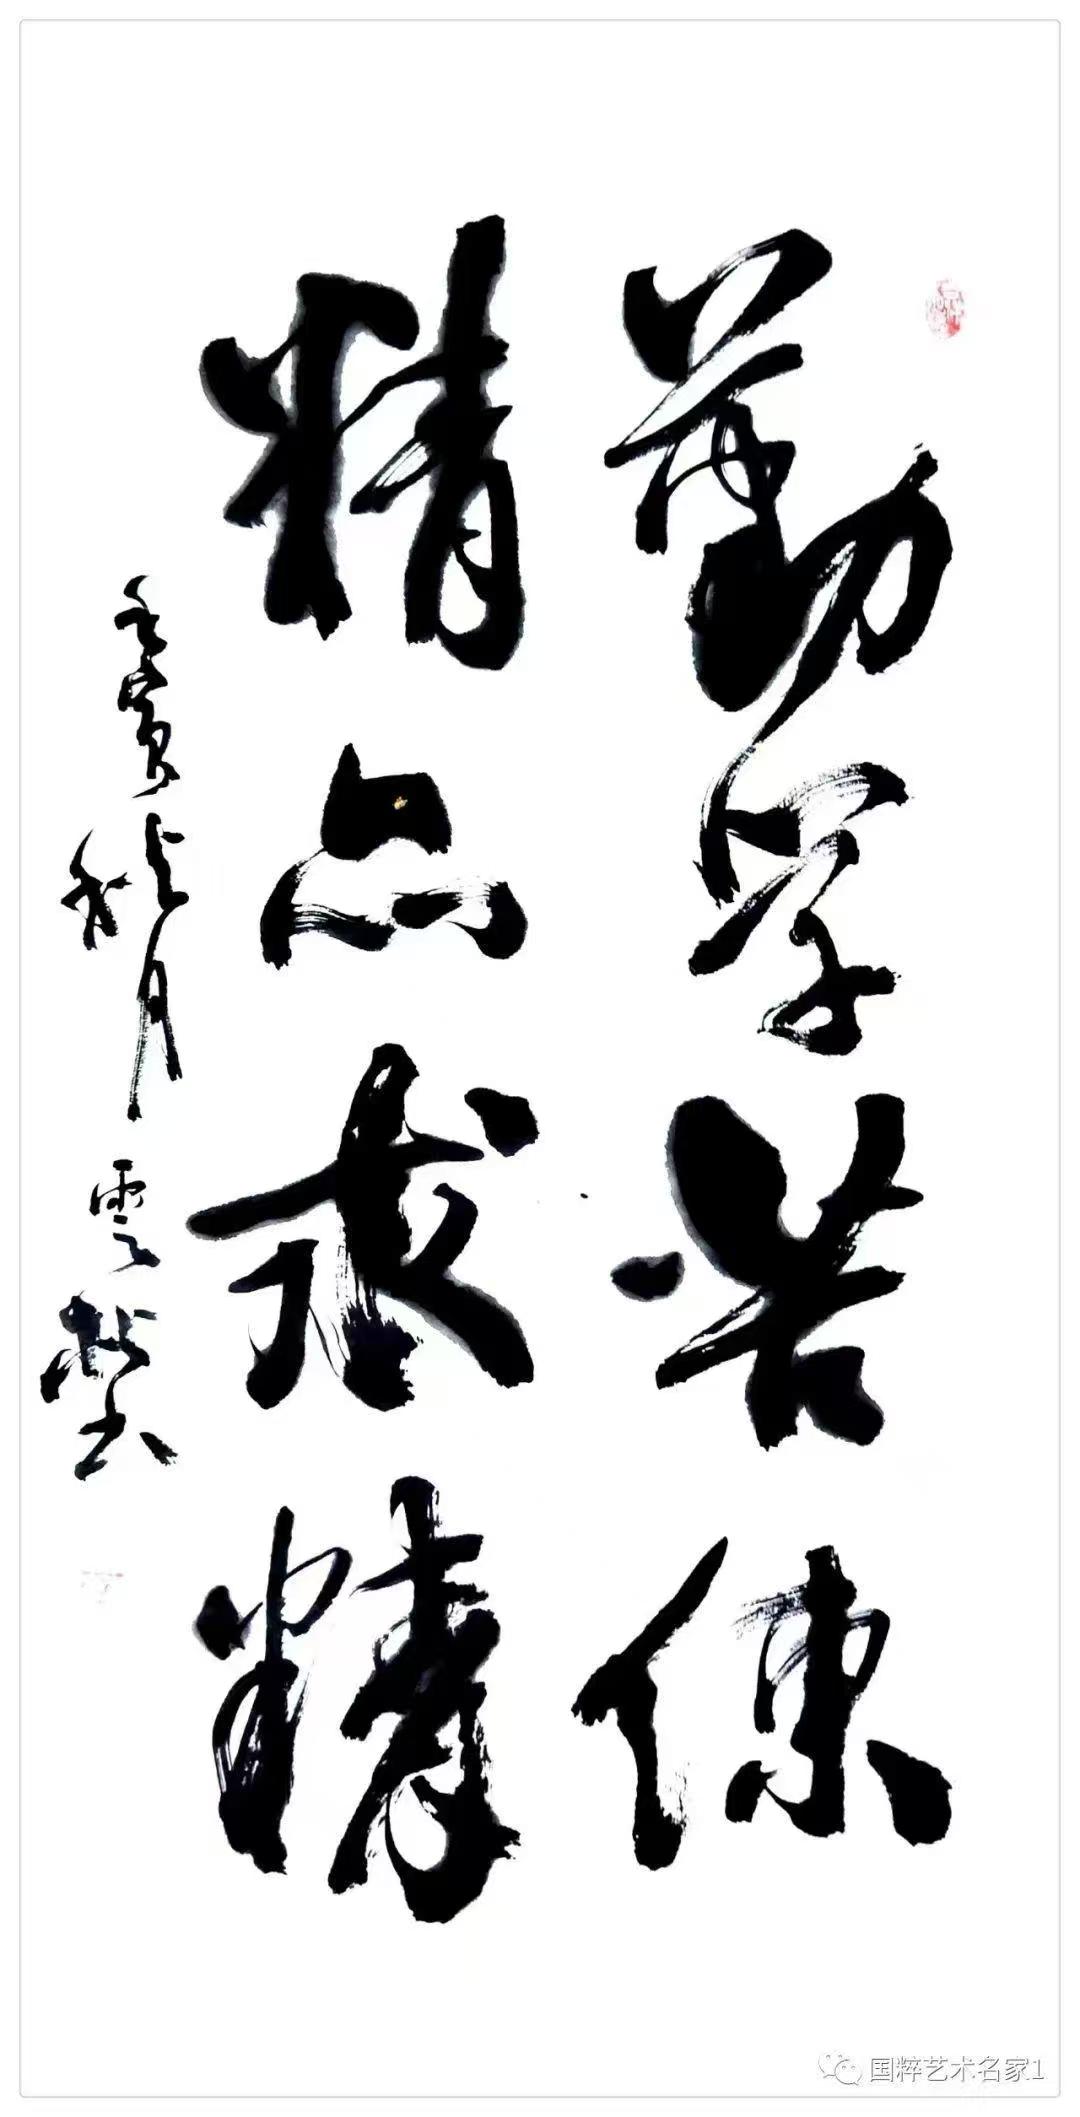 勤学苦練
精益求精
壬寅秋月 雲
国粹艺术名家1